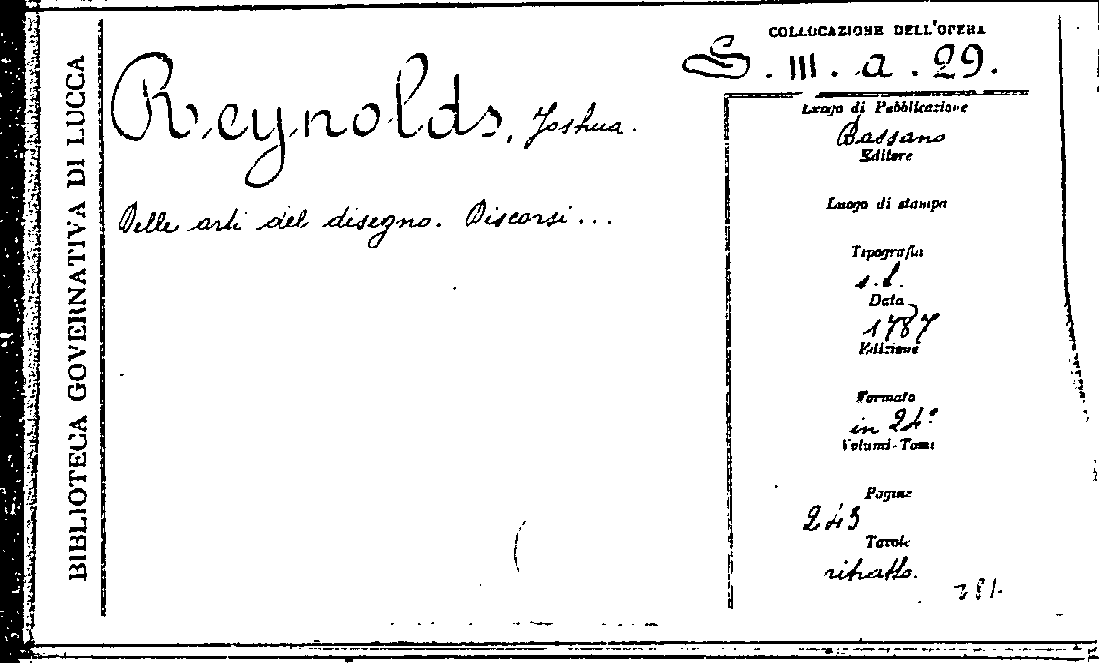 BIBLIOTECA GOVERNATIVA DI LUCCA
Reynolds, Joshua.
Delle arti del disegno. Discorsi...
COLLOCAZIONE DELL'OPERA
S. III. a. 29.
Luogo di Pubblicazione
Bassano
Editore
Luogo di stampa
Tipografia
s.t.
Data
1787
Edizione
Formato
in 24°
Volumi-Tomi
Pagine
243
Tavole
ritratto.